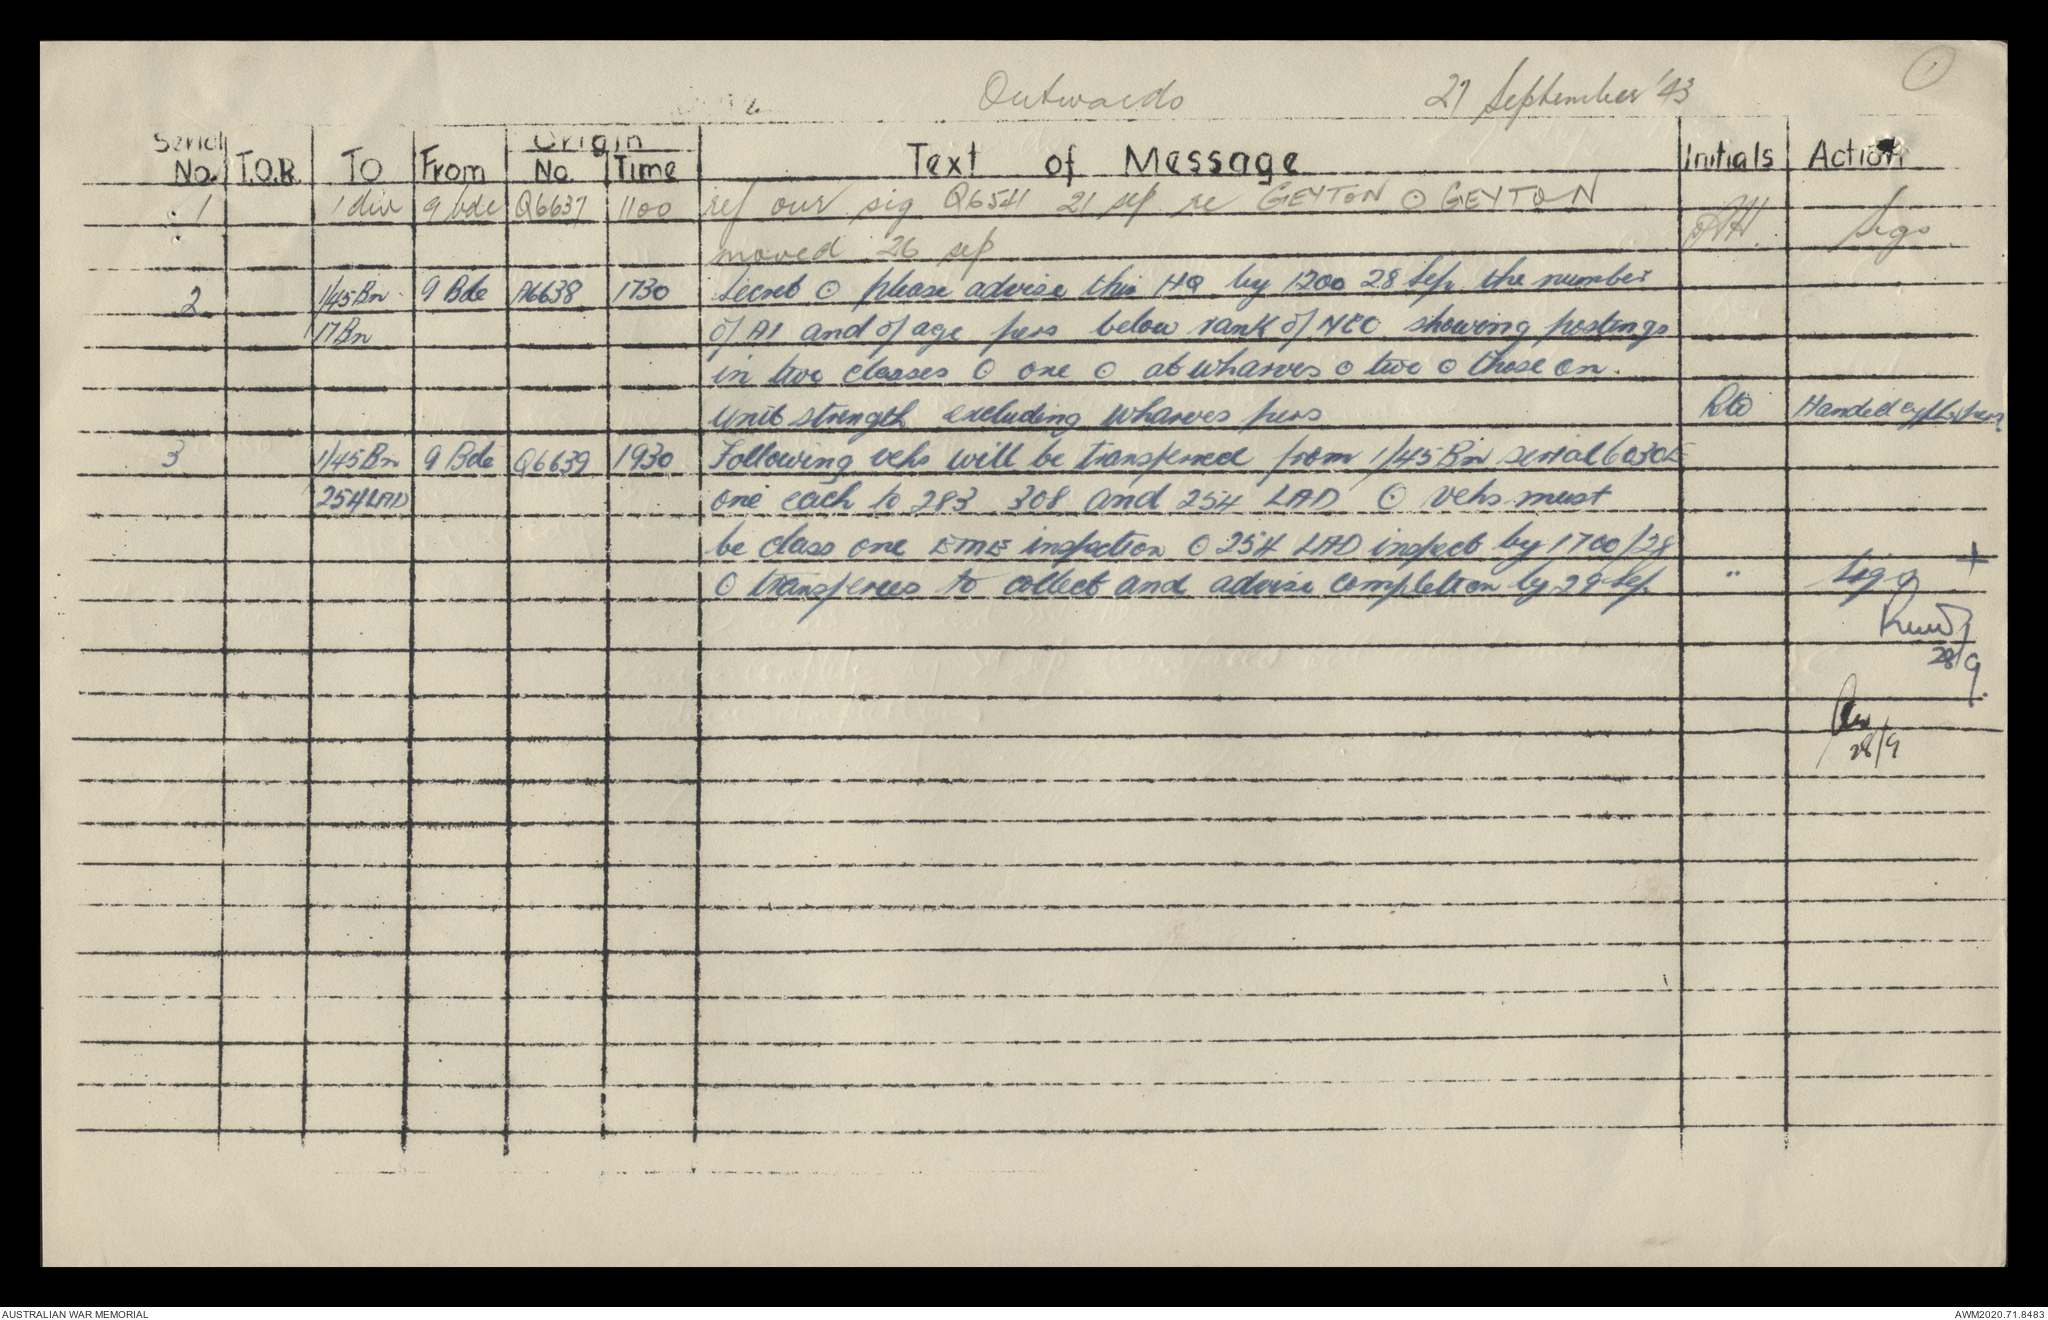 Outwards 27 September '43
1
Serial No. T.O.R. TO From Origin No. Time Text of Message Initials Action
1 1 div 9 bde Q6637 1100 ref our sig Q6541 21 sep re GEYTON ⊙ GEYTON
moved 26 sep Sigs
2 1/45 Bn 9 Bde A6638 1730 Secret ⊙ please advise this HQ by 1200 28 Sep the number
17 Bn of A1 and of age pers below rank of NCO showing postings
in two classes ⊙ one ⊙ at wharves ⊙ two ⊙ those on
unit strength excluding wharves pers Handed
3 1/45 Bn 9 Bde Q6639 1930 Following vehs will be transferred from 1/45 Bn serial 6030E
254 LAD one each to 283 308 and 254 LAD ⊙ Vehs must
be class one EME inspection ⊙ 254 LAD inspect by 1700/28
⊙ transferees to collect and advise completion by 29 Sep. " Sigs +
28/9.
28/9
AUSTRALIAN WAR MEMORIAL AWM2020.71.8483